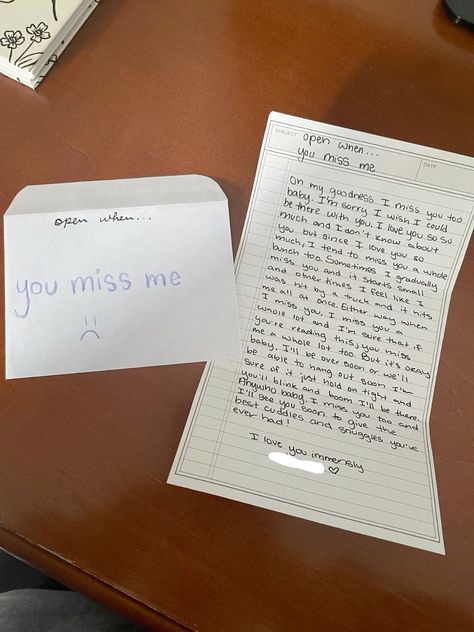 open when...
you miss me
SUBJECT open when...
you miss me
DATE
Oh my goodness I miss you too
baby. I'm sorry I wish I could
be there with you. I love you so su
much and I don't know about
you but since I love you so
much, I tend to miss you a whole
bunch too. Sometimes I gradually
miss you and it starts small
and other times I feel like I
was hit by a truck and it hits
me all at once. Either way when
I miss you, I miss you a
whole lot and I'm sure that if
you're reading this, you miss
me a whole lot too. But it's okay
baby. I'll be over soon or we'll
be able to hang out soon I'm
sure of it just hold on tight and
you'll blink and boom I'll be there.
Anywho baby. I miss you too and
I'll see you soon to give the
best cuddles and snuggles you've
ever had!
I love you immensly